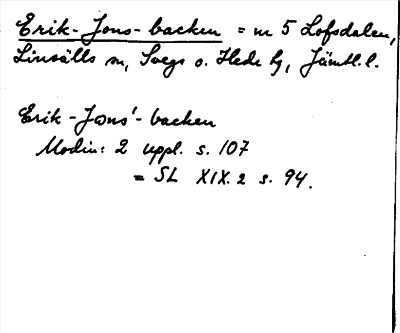 Erik-Jons-backen = m 5 Lofsdalen,
Linsälls sn, Svegs o. Hede tg, Jämtl. l.
Erik-Jons'-backen
Modin: 2 uppl. s. 107
= SL XIX. 2 s. 94.